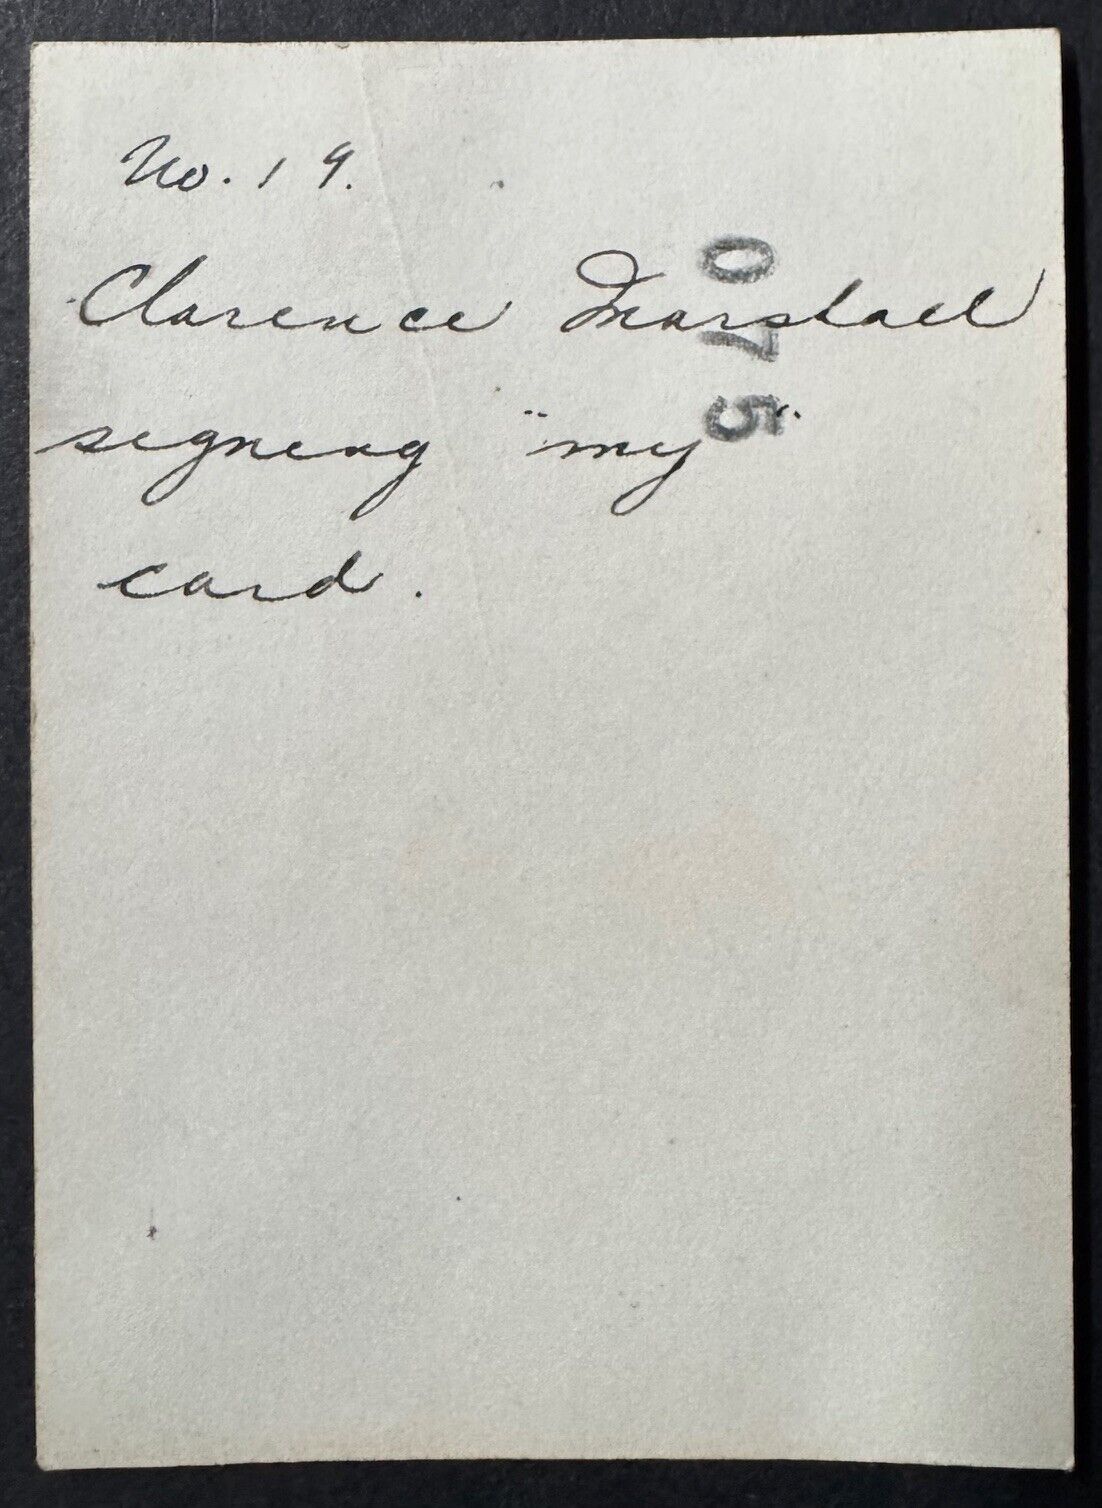 No. 19.
Clarence Marshall
signing "my"
card.
075